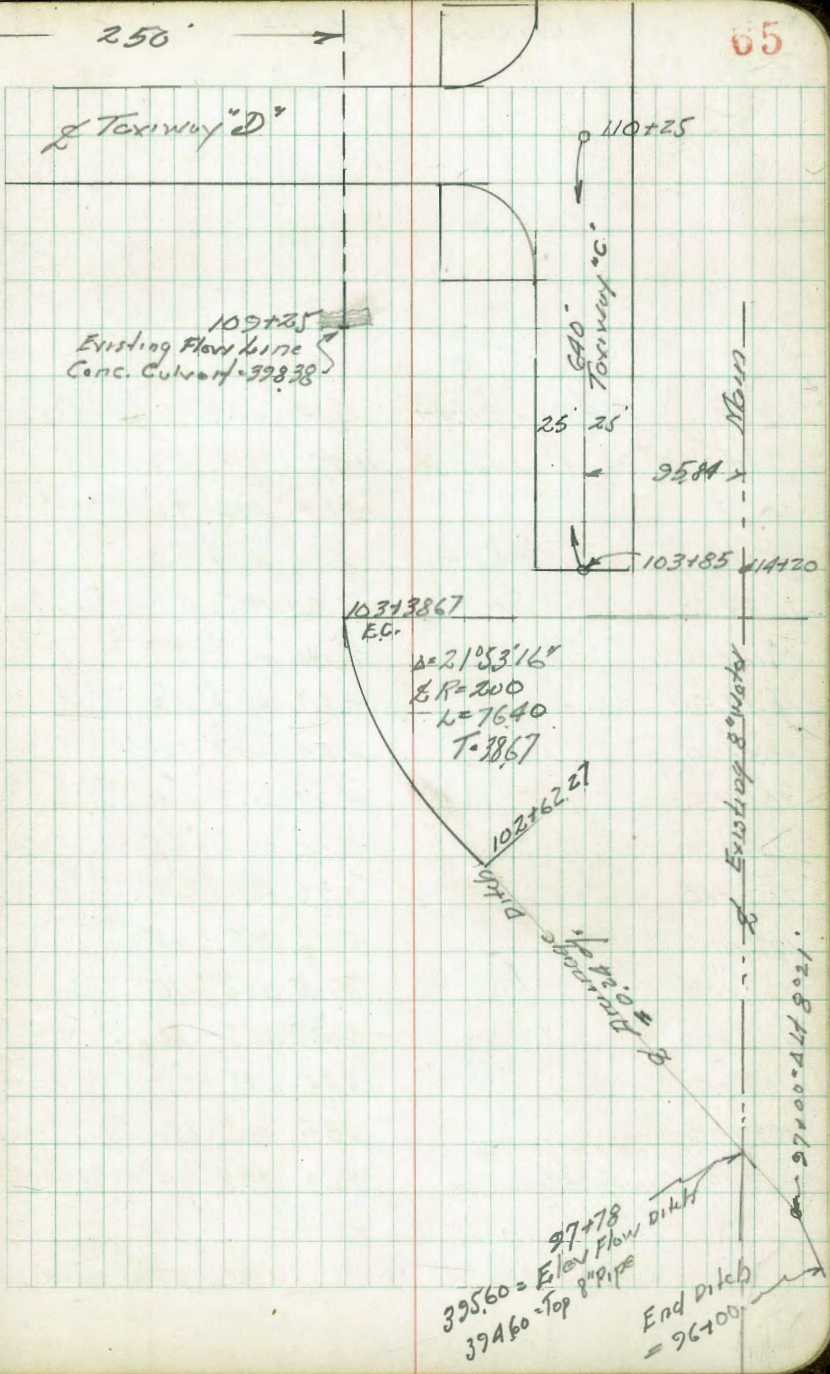 250'
65
℄ Taxiway "D"
110+25
640'
Taxiway "C"
109+25
Existing Flow Line
Conc. Culvert = 398.38
25' 25'
95.84
103+85
114+20
℄ Existing 8" Water Main
103+38.67
E.C.
Δ=21°53'16"
℄ R=200
L=76.40
T=38.67
102+62.27
℄ Drainage Ditch
97+00=Δ Lt 8°21'
97+78
395.60 = Elev Flow Ditch
394.60 = Top 8" Pipe
End Ditch
= 96+00